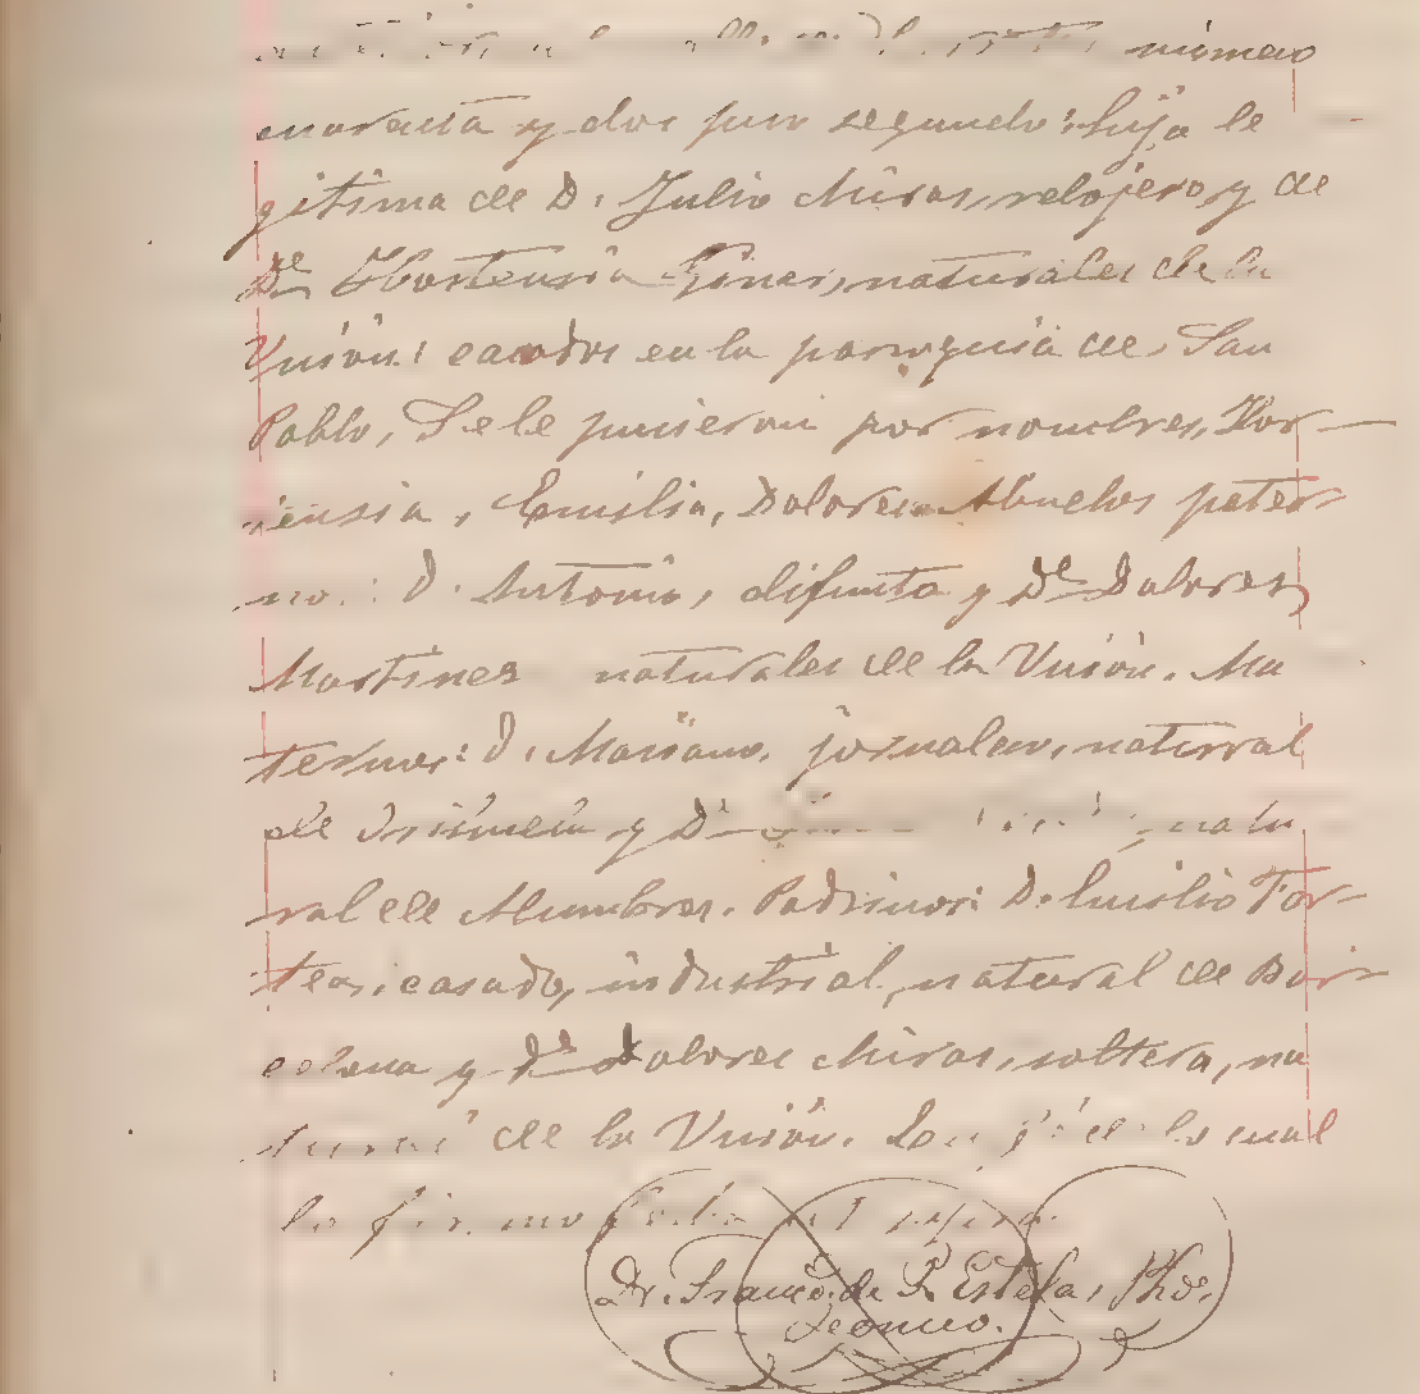 número
cuarenta y dos piso segundo: hija le
gitima de D. Julio Miras, relojero, y de
Dª Hortensia Giner, naturales de la
Unión: casados en la parroquia de San
Pablo, Se le pusieron por nombres, Hor-
tensia, Emilia, Dolores. Abuelos pater-
nos: D. Antonio, difunto y Dª Dolores
Martinez naturales de la Unión. Ma
ternos: D. Mariano, jornalero, natural
de y Dª natu
ral de Padrinos: D. Emilio For-
tea, casado, industrial, natural de Bar-
celona y Dª Dolores Miras, soltera, na
tural de la Unión. Con fé de lo cual
lo firmo fecha ut supra.
Dr. Franco. de P. Estela, Pbo.
Ecónomo.